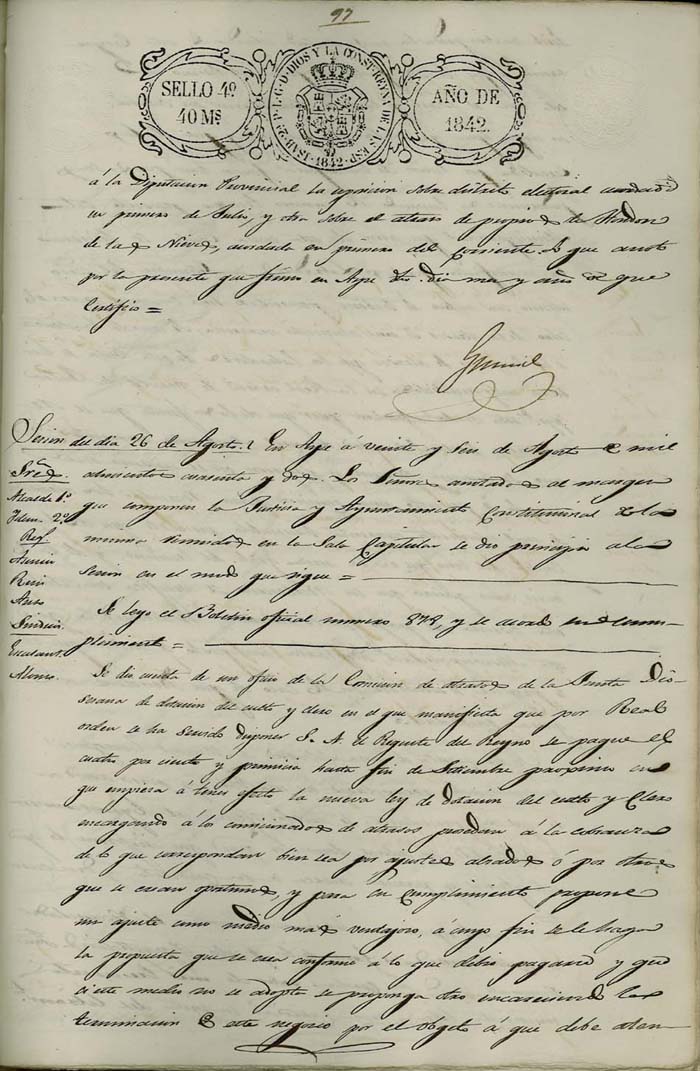 97
SELLO 4º
40 Mˢ
ISAB. 2ª P. L. G. D. DIOS Y LA CONST. REYNA DE LAS ESP.
1842
AÑO DE
1842.
á la Diputacion Provincial la esposicion sobre distrito electoral acordada
en primero de Julio, y otra sobre el atraso de propios de
de las Nieves, acordada en primero del corriente. Lo que anoto
por la presente que firmo en Aspe dho. dia mes y año de que
Certifico =
Sesion del dia 26 de Agosto. En Aspe á veinte y seis de Agosto de mil
ochocientos cuarenta y dos. Los Señores anotados al margen
que componen la Justicia y Ayuntamiento Constitucional de la
misma reunidos en la Sala Capitular se dio principio a la
sesion en el modo que sigue =
Sres.
Alcalde 1.º
Idem. 2.º
Reg.
Asencio
Ruiz
Sindico.
Alonso.
Se leyo el Boletin oficial numero 878, y se acordó su cum-
plimiento =
Se dio cuenta de un oficio de la Comision de atrasos de la Junta Dio-
cesana de dotacion del culto y clero en el que manifiesta que por Real
orden se ha servido disponer S. A. el Regente del Reyno se pague el
cuatro por ciento y primicia hasta fin de Setiembre proximo en
que empieza á tener efecto la nueva ley de dotacion del culto y Clero
encargando á los comisionados de atrasos procedan á la cobranza
de lo que correspondan bien sea por ajustes alzados ó por otros
que se crean oportunos, y para su cumplimiento propone
un ajuste como medio mas ventajoso, á cuyo fin se le haga
la propuesta que se crea conforme á lo que debio pagarse y que
si este medio no se adopta se proponga otro encareciendo la
terminacion de este negocio por el obgeto á que debe aten-